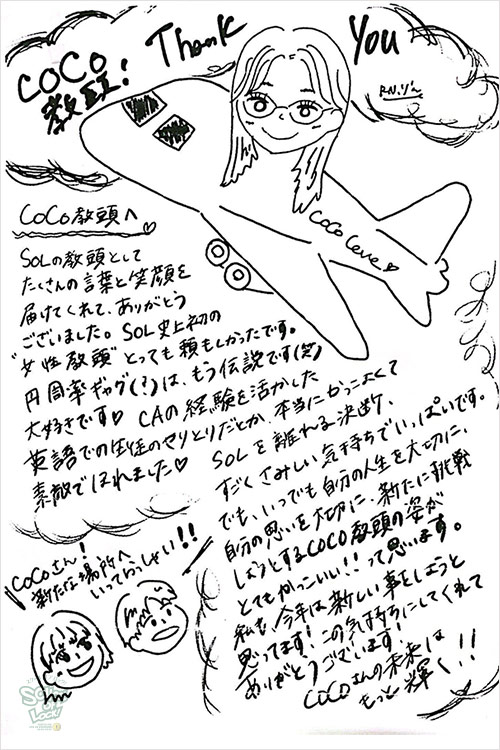 CoCo
教頭!
Thank
You
R.N. りん
CoCo Love♡
CoCo教頭へ
SOLの教頭として
たくさんの言葉と笑顔を
届けてくれて、ありがとう
ございました。SOL史上初の
"女性教頭"とっても頼もしかったです。
円周率ギャグ(?)は、もう伝説です(笑)
大好きです♡ CAの経験を活かした
英語での生徒のやりとりだとか、本当にかっこよくて
素敵でほれました♡
SOLを離れる決断、
すごくさみしい気持ちでいっぱいです。
でも、いつでも自分の人生を大切に、
自分の思いを大切に、新たに挑戦
しようとするCOCO教頭の姿が
とてもかっこいい!!って思います。
私も、今年は新しい事をしようと
思ってます!この気持ちにしてくれて
ありがとうございます!
COCOさんの未来は
もっと輝く!!
CoCoさん!
新たな場所へ
いってらっしゃい!!
SCHOOL
OF
LOCK!